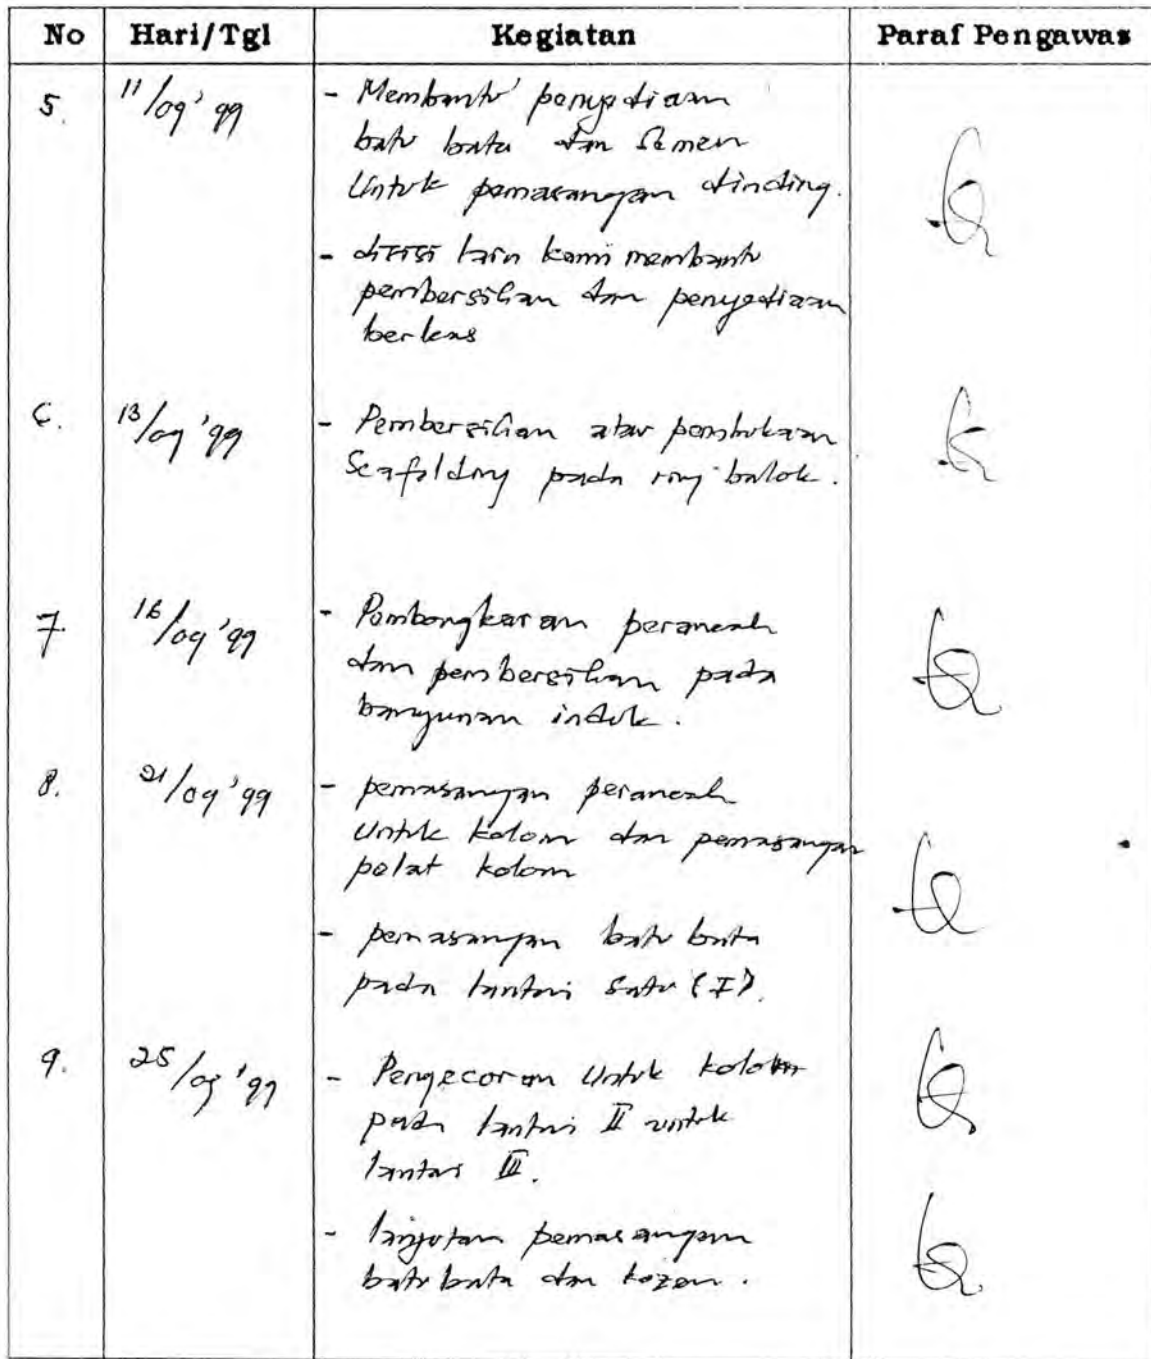 No Hari/Tgl Kegiatan Paraf Pengawas
5. 11/09' 99 - Membantu penyediaan
batu bata dan semen
Untuk pemasangan dinding.
- disisi lain kami membantu
pembersihan dan penyediaan
berkas
6. 13/09 '99 - Pembersihan atau pembukaan
Scafolding pada ring balok.
7. 16/09 '99 - Pembongkaran perancah
dan pembersihan pada
bangunan induk.
8. 21/09 '99 - pemasangan perancah
Untuk kolom dan pemasangan
pelat kolom
- pemasangan batu bata
pada lantai satu (I).
9. 25/09 '99 - Pengecoran Untuk kolom
pada lantai II untuk
lantai III.
- lanjutan pemasangan
batu bata dan kozen.